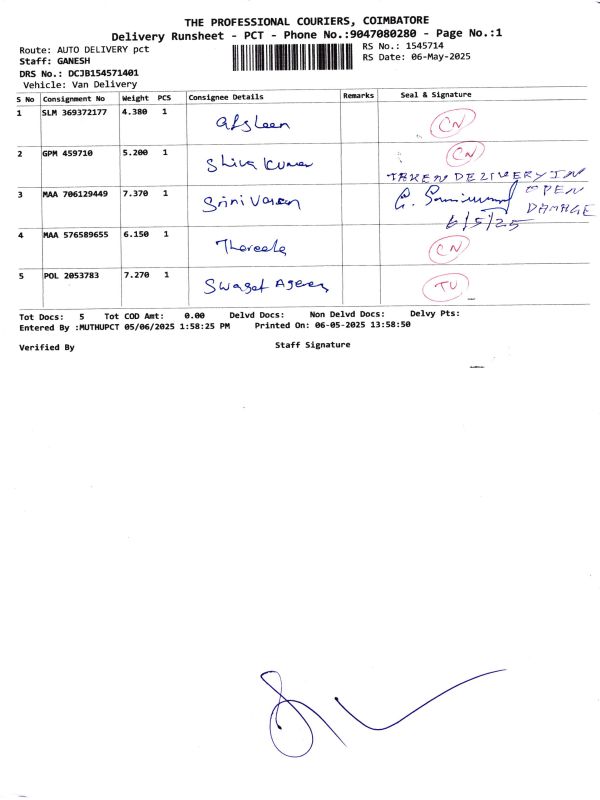 THE PROFESSIONAL COURIERS, COIMBATORE
Delivery Runsheet - PCT - Phone No.:9047080280 - Page No.:1
Route: AUTO DELIVERY pct
RS No.: 1545714
Staff: GANESH
RS Date: 06-May-2025
DRS No.: DCJB154571401
Vehicle: Van Delivery
S No Consignment No Weight PCS Consignee Details Remarks Seal & Signature
1 SLM 369372177 4.380 1 Afsleen CN
2 GPM 459710 5.200 1 Shiva Kumar CN
TAKEN DELIVERY IN
3 MAA 706129449 7.370 1 Srinivasan OPEN
DAMAGE
6/5/25
4 MAA 576589655 6.150 1 CN
5 POL 2053783 7.270 1 Swagat Agency TU
Tot Docs: 5 Tot COD Amt: 0.00 Delvd Docs: Non Delvd Docs: Delvy Pts:
Entered By :MUTHUPCT 05/06/2025 1:58:25 PM Printed On: 06-05-2025 13:58:50
Verified By Staff Signature